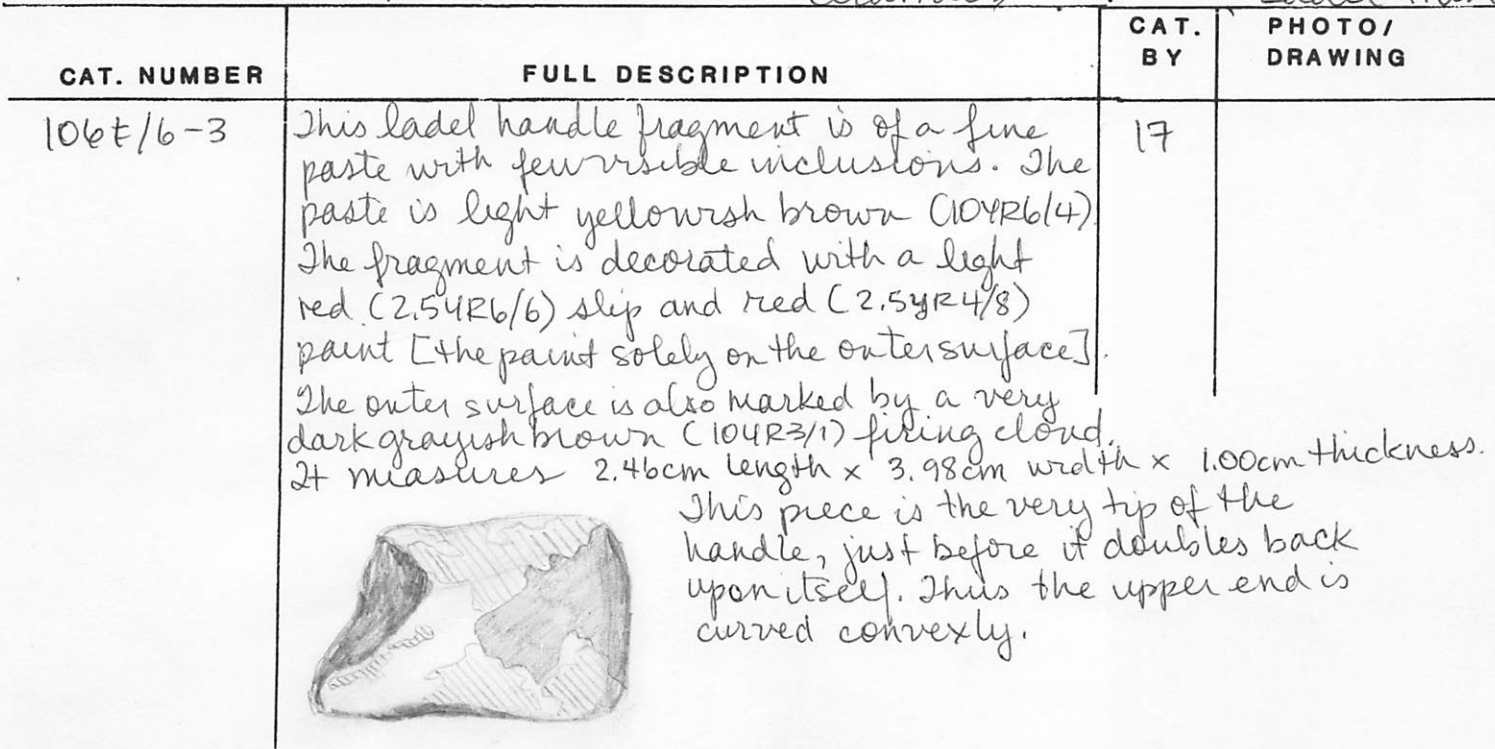 CAT. NUMBER
FULL DESCRIPTION
CAT. BY
PHOTO/ DRAWING
106t/6-3
This ladel handle fragment is of a fine
paste with few visible inclusions. The
paste is light yellowish brown (10YR6/4)
The fragment is decorated with a light
red (2.5YR6/6) slip and red (2.5YR4/8)
paint [the paint solely on the outer surface].
The outer surface is also marked by a very
dark grayish brown (10YR3/1) firing cloud.
It measures 2.46cm length x 3.98cm width x 1.00cm thickness.
This piece is the very tip of the
handle, just before it doubles back
upon itself. Thus the upper end is
curved convexly.
17